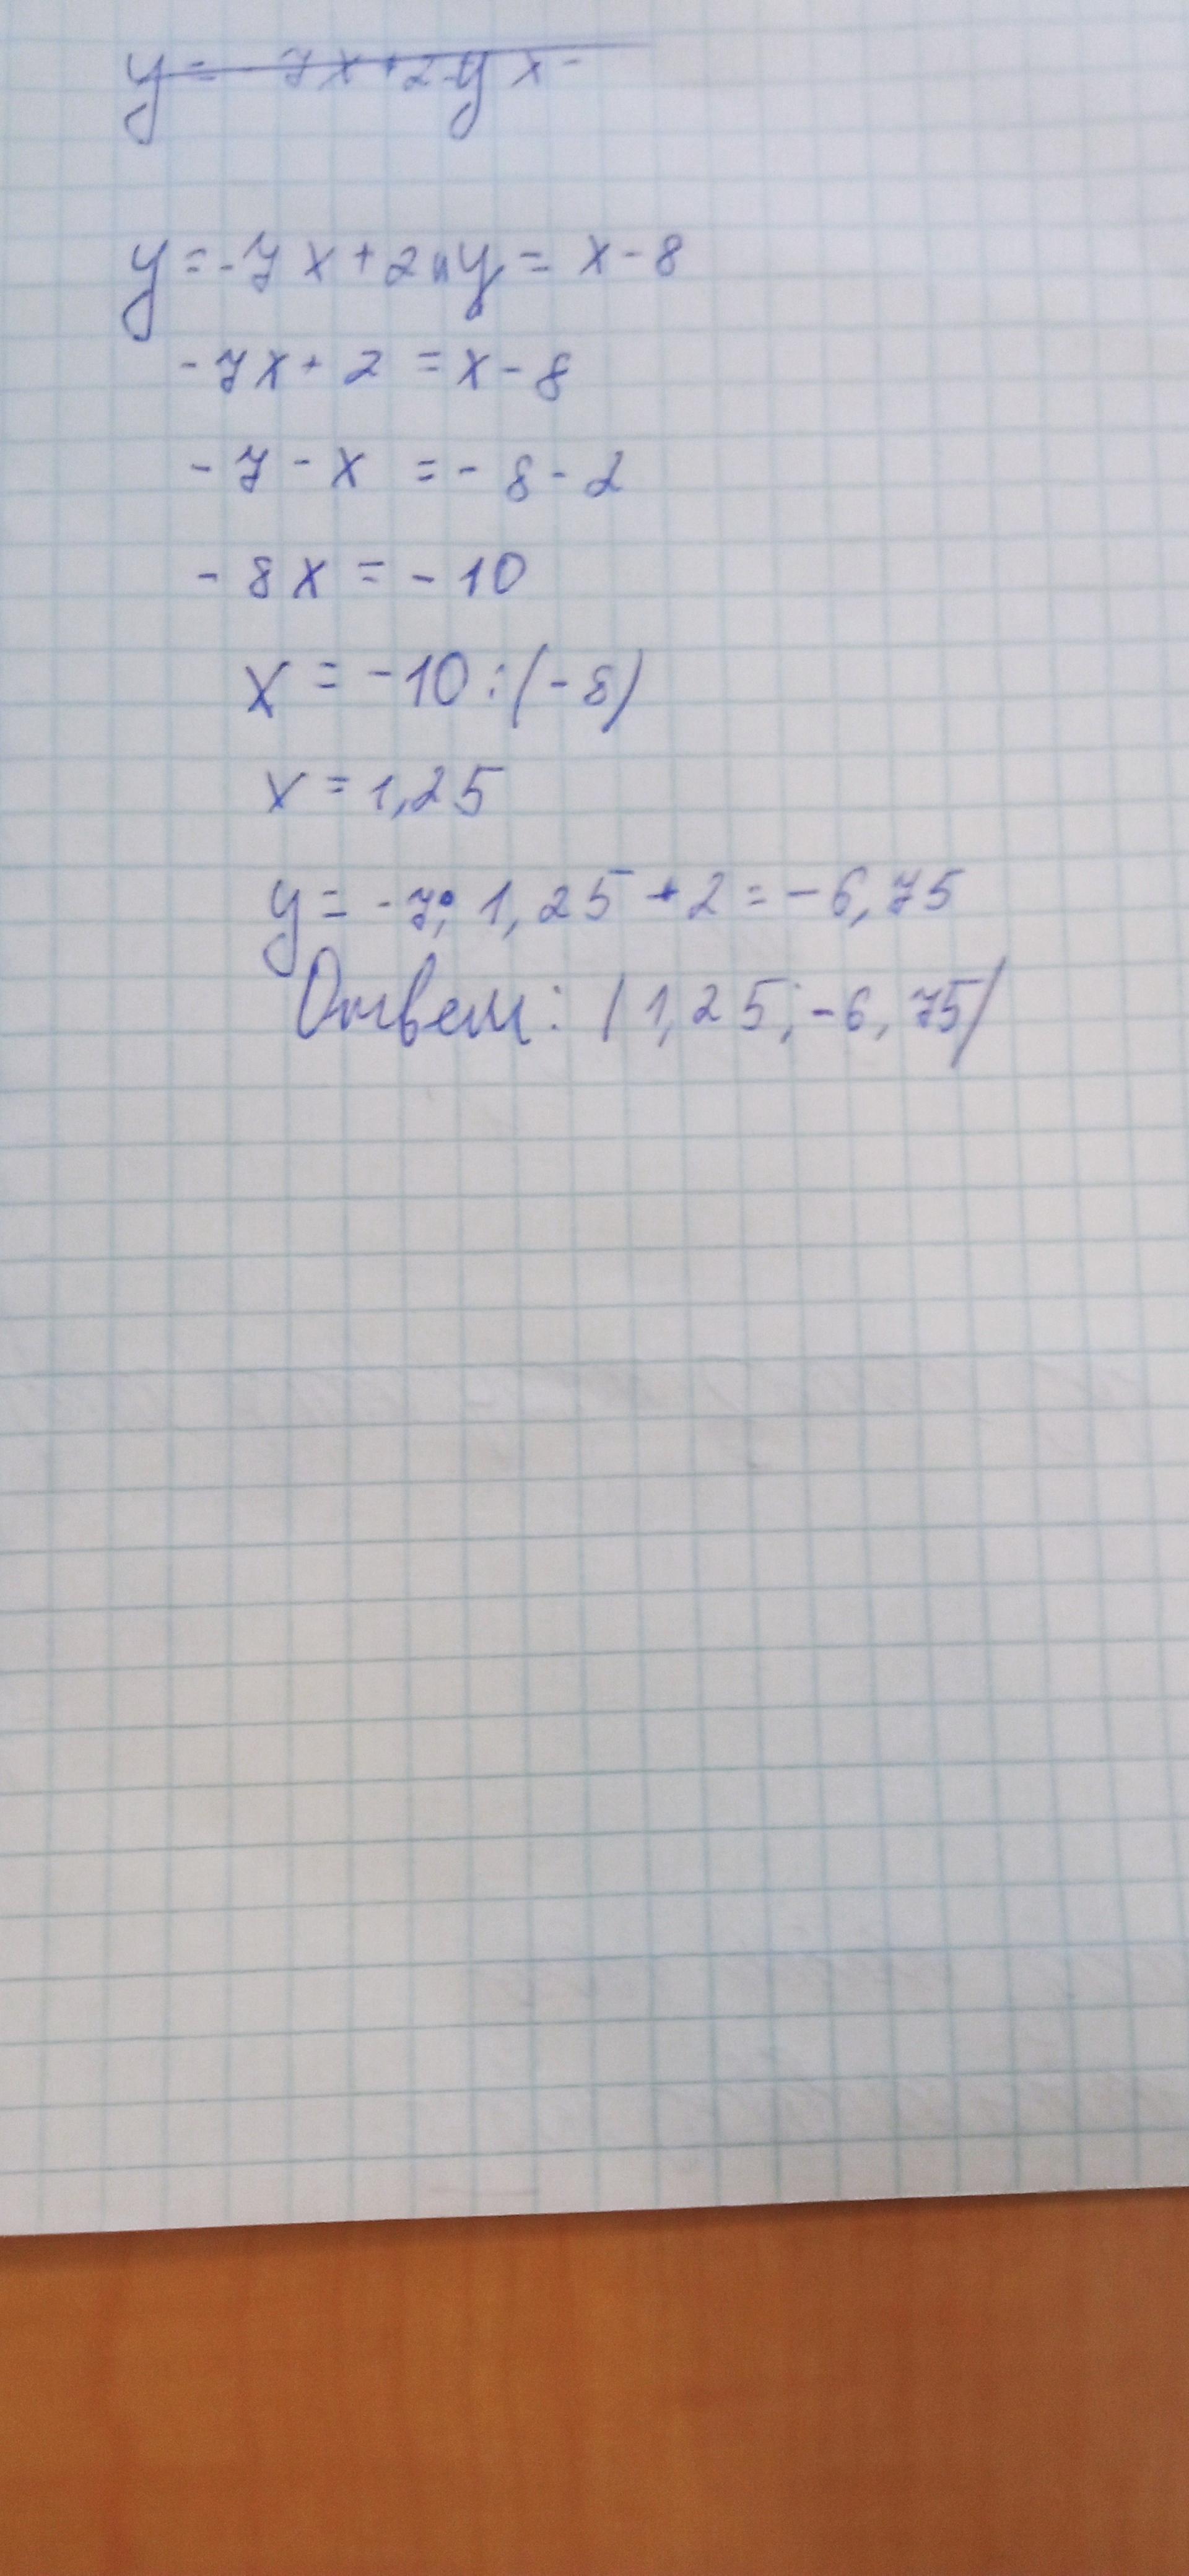 y = -7x + 2 y x -
y = -7x + 2 и y = x - 8
-7x + 2 = x - 8
-7 - x = -8 - 2
-8x = -10
x = -10 : (-8)
x = 1,25
y = -7 · 1,25 + 2 = -6,75
Ответ: (1,25; -6,75)